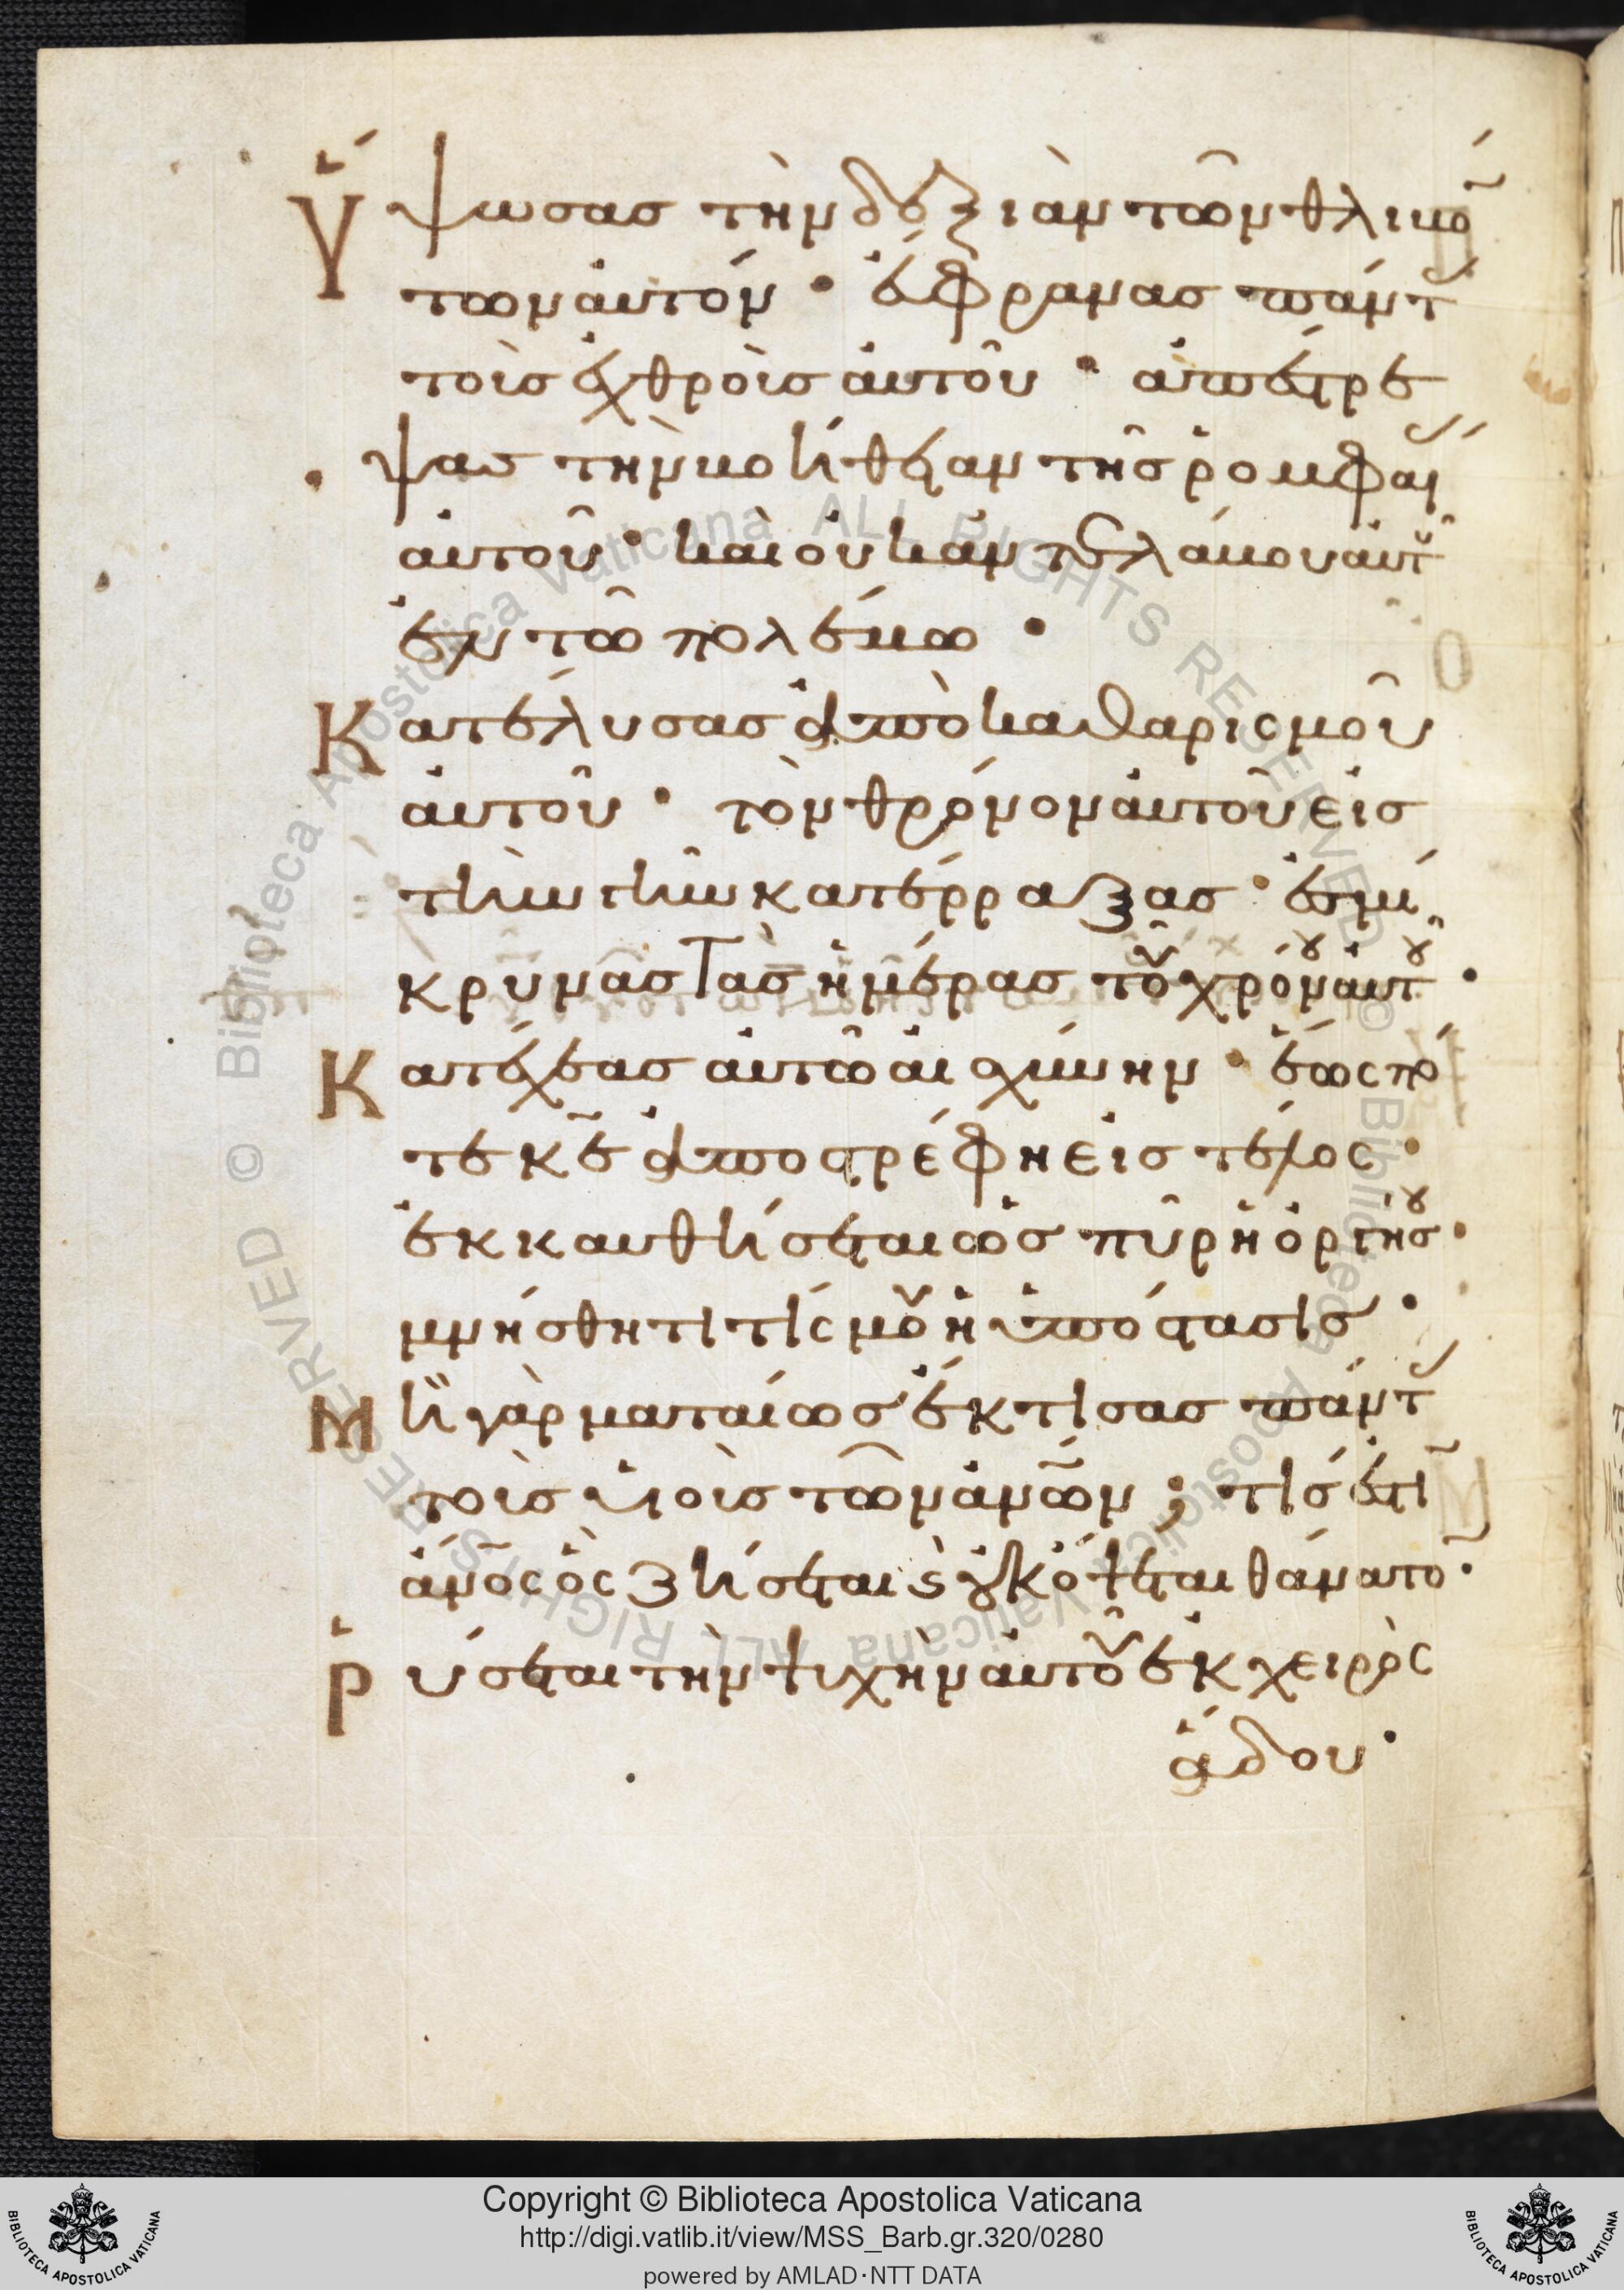 Ὕψωσας τὴν δεξιὰν τῶν θλιβό
των αὐτόν · εὔφρανας πάντ
τοὺς ἐχθροὺς αὐτοῦ · ἀπέστρε
ψας τὴν βοήθειαν τῆς ῥομφαί
αὐτοῦ · καὶ οὐκ ἀντελάβου αὐτοῦ
ἐν τῷ πολέμω ·
Κατέλυσας ἀπὸ καθαρισμοῦ
αὐτοῦ · τὸν θρόνον αὐτοῦ εἰς
τὴν γῆν κατέρραξας · ἐσμί
κρυνας τὰς ἡμέρας τοῦ χρόνου αὐτοῦ ·
Κατέχεας αὐτῶ αἰσχύνην · ἕως πό
τε κε ἀποστρέφη εἰς τέλος ·
ἐκκαυθήσεται ὡς πῦρ ἡ ὀργήσου ·
μνήσθητι τίς μου ἡ ὑπόστασις ·
Μὴ γὰρ ματαίως ἔκτισας πάντ
τοὺς υἱοὺς τῶν ἀνων ; τίς ἐστι
ἄνος ὃς ζήσεται ϛ οὐκ ὄψεται θάνατο ·
Ῥύσεται τὴν ψυχὴν αὐτοῦ ἐκ χειρὸς
ἅδου ·
Copyright © Biblioteca Apostolica Vaticana
http://digi.vatlib.it/view/MSS_Barb.gr.320/0280
powered by AMLAD·NTT DATA